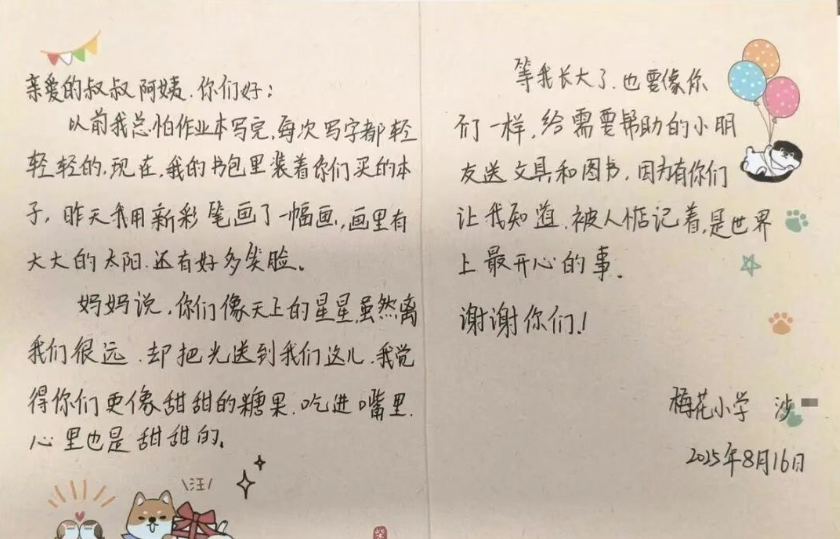 亲爱的叔叔阿姨.你们好:
以前我总怕作业本写完,每次写字都轻
轻轻的.现在,我的书包里装着你们买的本
子，昨天我用新彩笔画了一幅画,画里有
大大的太阳.还有好多笑脸。
妈妈说，你们像天上的星星,虽然离
我们很远.却把光送到我们这儿.我觉
得你们更像甜甜的糖果.吃进嘴里.
心里也是甜甜的。
汪
等我长大了.也要像你
们一样，给需要帮助的小朋
友送文具和图书，因为有你们
让我知道.被人惦记着,是世界
上最开心的事。
谢谢你们!
梅花小学 沙
2025年8月16日